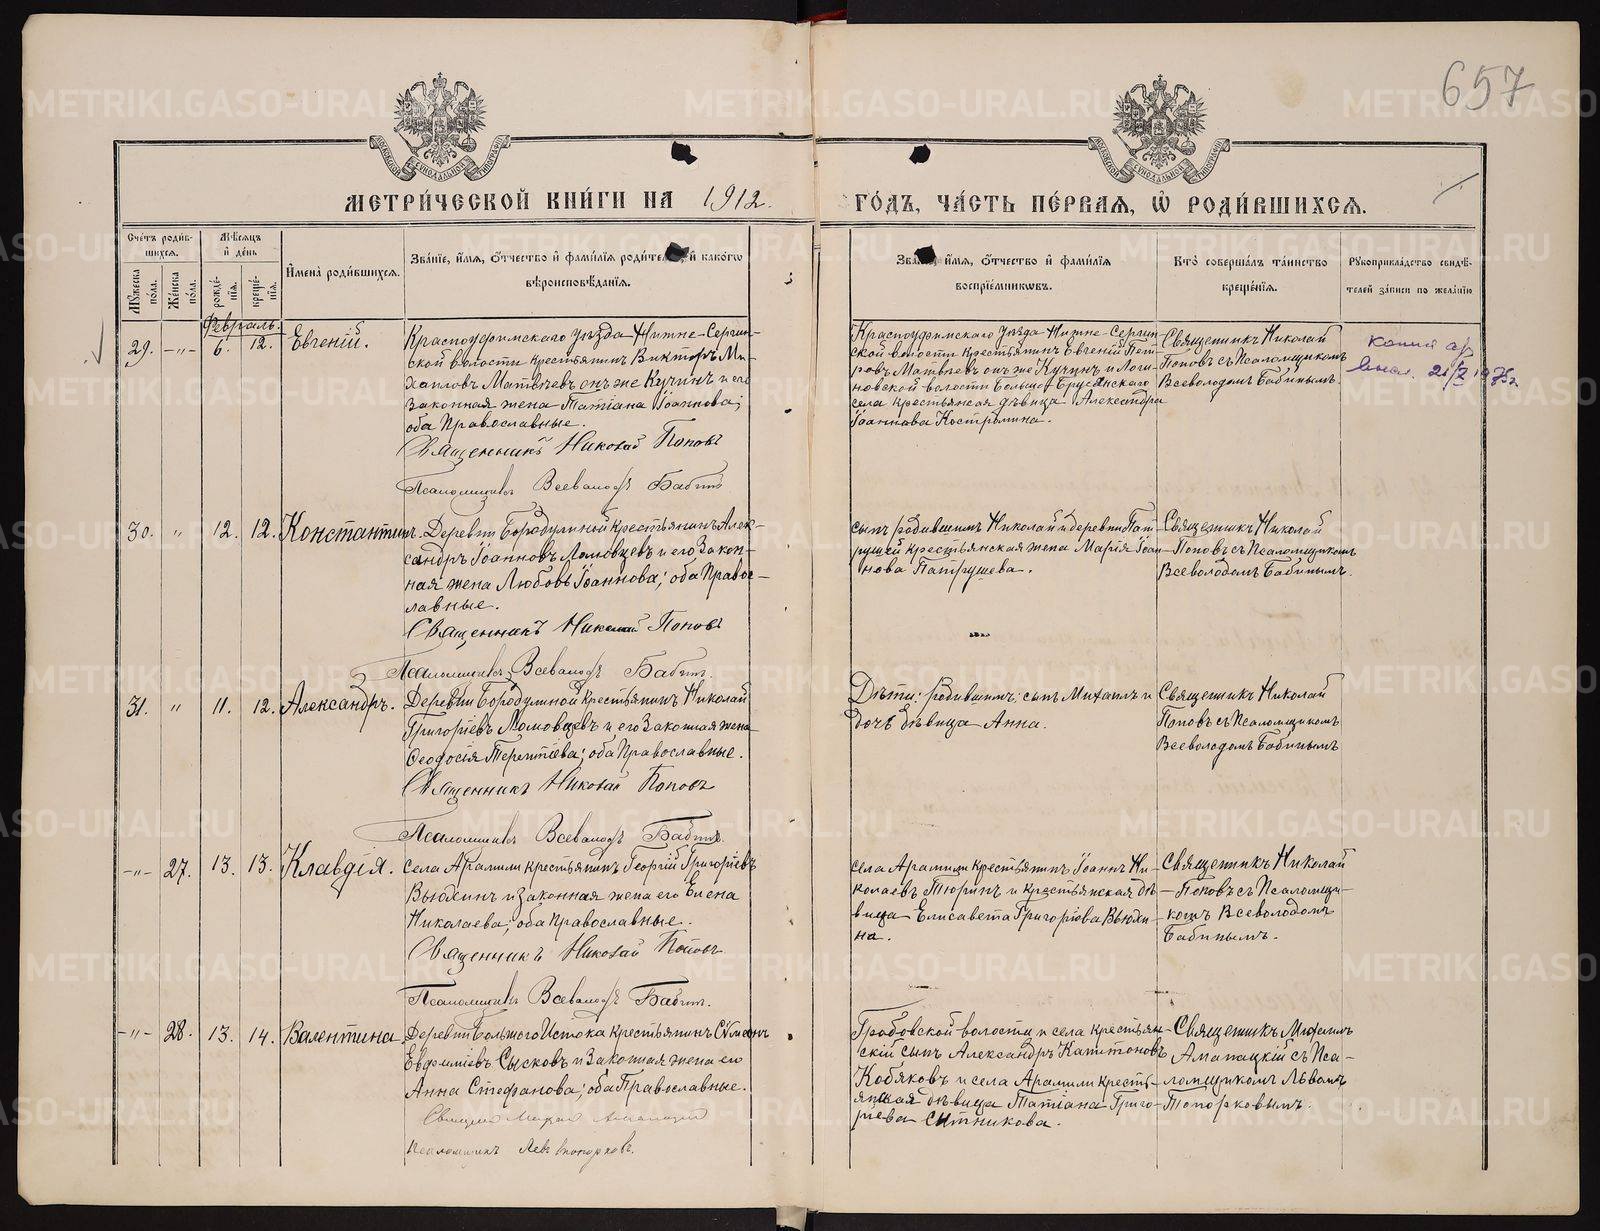 657
МЕТРИ́ЧЕСКОЙ КНИ́ГИ НА 1912. ГО́ДЪ, ЧА́СТЬ ПЕ́РВАЯ, Ѡ РОДИ́ВШИХСЯ.
Сче́тъ роди́в-
шихся.
Му́жеска по́ла.
Же́нска по́ла.
Мѣ́сяцъ
и де́нь
рожде́-
нїя.
креще́-
нїя.
Имена̀ роди́вшихся.
Зва́нїе, и́мя, о́тчество и фами́лїя роди́телей, и како́гѡ
вѣроисповѣ́данїя.
Зва́нїе, и́мя, о́тчество и фами́лїя
воспрїе́мниковъ.
Кто̀ соверша́лъ та́инство
креще́нїя.
Рукоприкла́дство свидѣ́-
телей за́писи по жела́нїю
Февраль.
29. -„- 6. 12. Евгеній.
Красноуфимскаго уѣзда Нижне-Сергин-
ской волости крестьянинъ Викторъ Ми-
хаиловъ Матвѣевъ онъ же Кучинъ и его
законная жена Татіана Іоаннова;
оба Православные.
Священникъ Николай Поповъ
Псаломщикъ Всеволодъ Бабинъ
Красноуфимскаго уѣзда Нижне-Сергин-
ской волости крестьянинъ Евгеній Пет-
ровъ Матвѣевъ онъ же Кучинъ и Логи-
новской волости Больше Брусянскаго
села крестьянская дѣвица Александра
Іоаннова Костромина.
Священникъ Николай
Поповъ съ Псаломщикомъ
Всеволодомъ Бабинымъ.
копия
21/X 1975г
30. „ 12. 12. Константинъ.
Деревни Бородулиной крестьянинъ Алек-
сандръ Іоанновъ Ломовцевъ и его закон-
ная жена Любовь Іоаннова; оба Правос-
лавные.
Священникъ Николай Поповъ
Псаломщикъ Всеволодъ Бабинъ.
сынъ родившимъ Николай и деревни Пат-
рушей крестьянская жена Марія Іоан-
нова Патрушева.
Священникъ Николай
Поповъ съ Псаломщикомъ
Всеволодомъ Бабинымъ.
31. „ 11. 12. Александръ.
Деревни Бородулиной крестьянинъ Николай
Григоріевъ Ломовцевъ и его законная жена
Ѳеодосія Терентіева; оба Православные.
Священникъ Николай Поповъ
Псаломщикъ Всеволодъ Бабинъ.
Дѣти: родившимъ: сынъ Михаилъ и
дочь дѣвица Анна.
Священникъ Николай
Поповъ съ Псаломщикомъ
Всеволодомъ Бабинымъ
-„- 27. 13. 13. Клавдія.
села Арамили крестьянинъ Георгій Григоріевъ
Вьюхинъ и законная жена его Елена
Николаева; оба Православные.
Священникъ Николай Поповъ
Псаломщикъ Всеволодъ Бабинъ.
села Арамили крестьянинъ Іоаннъ Ни-
колаевъ Тюринъ и крестьянская дѣ-
вица Елисавета Григоріева Вьюхи-
на.
Священникъ Николай
Поповъ съ Псаломщи-
комъ Всеволодомъ
Бабинымъ.
-„- 28. 13. 14. Валентина.
Деревни Большого Истока крестьянинъ Сѵмеонъ
Евфиміевъ Сысковъ и законная жена его
Анна Стефанова; оба Православные.
Священникъ Михаилъ Аманацкій
Псаломщикъ Левъ Топорковъ.
Гробовской волости и села крестьян-
скій сынъ Александръ Капитоновъ
Кобяковъ и села Арамили кресть-
янская дѣвица Татіана Григо-
рьева Ситникова.
Священникъ Михаилъ
Аманацкій съ Пса-
ломщикомъ Львомъ
Топорковымъ.